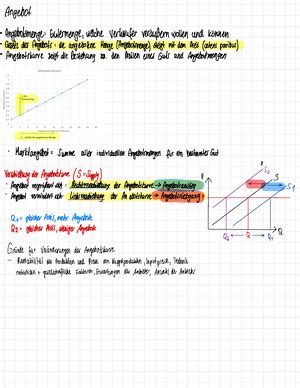 Angebot
- Angebotsmenge: Gütermenge, welche Verkäufer veräußern wollen und können
- Gesetz des Angebots: die angebotene Menge (Angebotsmenge) steigt mit dem Preis (ceteris paribus)
- Angebotskurve zeigt die Beziehung zw. den Preisen eines Guts und Angebotsmengen
• Marktangebot = Summe aller individuellen Angebotsmengen für ein bestimmtes Gut
Verschiebung der Angebotskurve (S = Supply)
• Angebot vergrößert sich = Rechtsverschiebung der Angebotskurve →
• Angebot vermindert sich = Linksverschiebung der Angebotskurve →
Q1 = gleicher Preis, mehr Angebote
Q2 = gleicher Preis, weniger Angebote
P
S2
S
S1
Q2 Q Q1
Q
Gründe für Veränderungen der Angebotskurve
- Rentabilität der Produktion und Preise von
natürliche + gesellschaftliche Faktoren, Erwartungen der Anbieter, Anzahl der Anbieter